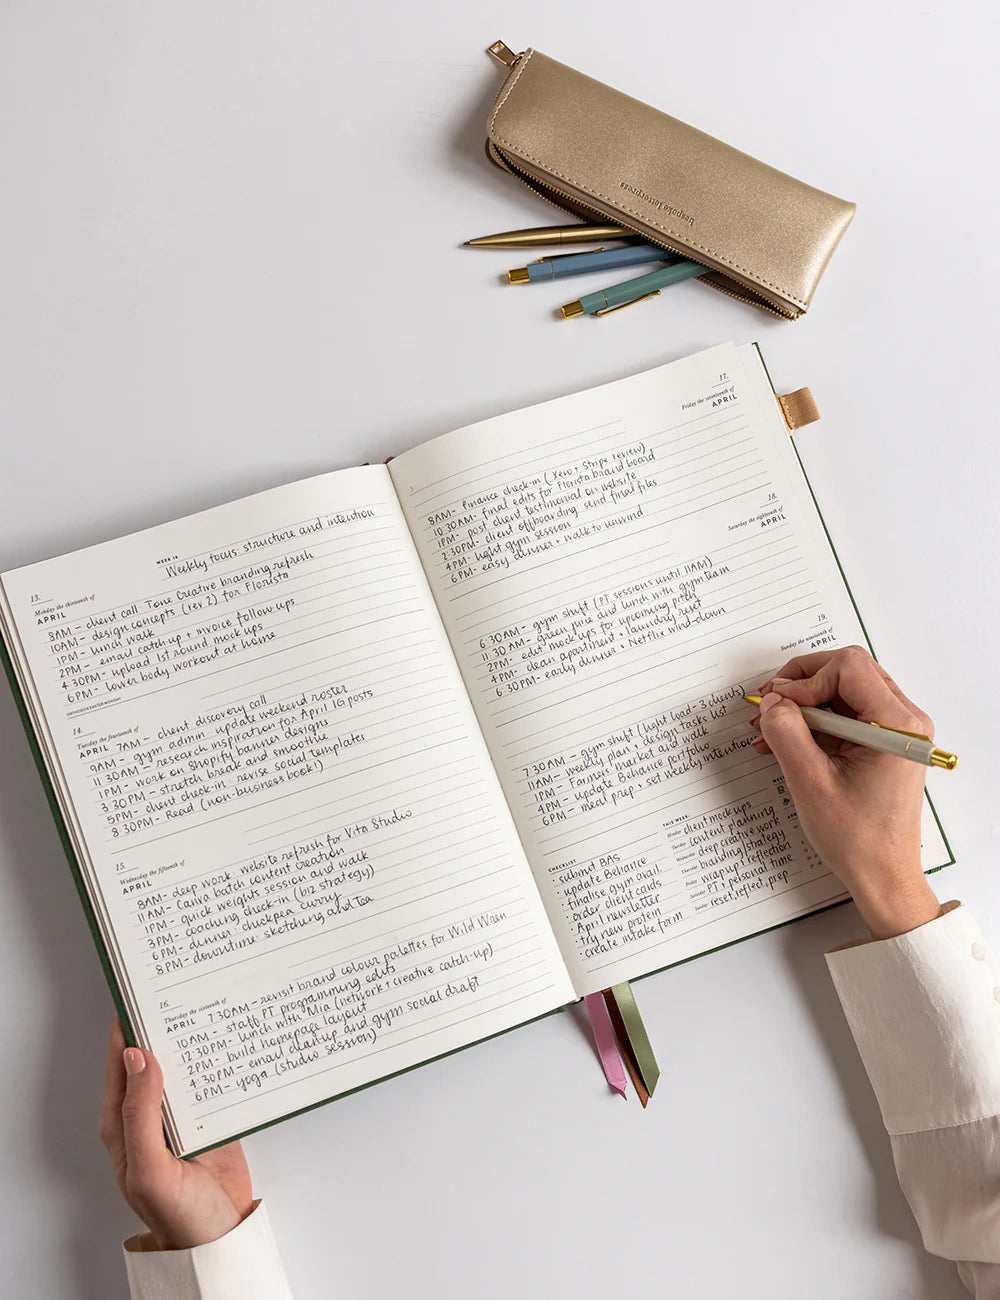 bespoke letterpress
WEEK 16
Weekly focus: structure and intention
13.
Monday the thirteenth of
APRIL
8AM - client call: Tone Creative branding refresh
10AM - design concepts (rev 2) for Florista
1PM - lunch walk
2PM - email catch-up + invoice follow ups
4:30PM - upload 1st round mock ups
6PM - lower body workout at home
ORTHODOX EASTER MONDAY
14.
Tuesday the fourteenth of
APRIL
7AM - client discovery call
9AM - gym admin: update weekend roster
11:30AM - research inspiration for April IG posts
1PM - work on Shopify banner designs
3:30PM - stretch break and smoothie
5PM - client check-in: revise social templates
8:30PM - Read (non-business book!)
15.
Wednesday the fifteenth of
APRIL
8AM - deep work: website refresh for Vita Studio
11AM - Canva batch content creation
1PM - quick weights session and walk
3PM - coaching check-in (biz strategy)
6PM - dinner: chickpea curry
8PM - downtime: sketching and tea
16.
Thursday the sixteenth of
APRIL
7:30AM - revisit brand colour palettes for Wild Wren
10AM - staff PT programming edits
12:30PM - lunch with Mia (network + creative catch-up)
2PM - build homepage layout
4:30PM - email clean-up and gym social draft
6PM - yoga (studio session)
17.
Friday the seventeenth of
APRIL
8AM - finance check-in (Xero + Stripe review)
10:30AM - final edits for Florista brand board
1PM - post client testimonial on website
2:30PM - client offboarding: send final files
4PM - light gym session
6PM - easy dinner + walk to unwind
18.
Saturday the eighteenth of
APRIL
6:30AM - gym shift (PT sessions until 11AM)
11:30AM - green juice and lunch with gym team
2PM - edit mock ups for upcoming pitch
4PM - clean apartment + laundry reset
6:30PM - early dinner + Netflix wind-down
19.
Sunday the nineteenth of
APRIL
7:30AM - gym shift (light load - 3 clients)
11AM - weekly plan + design tasks list
1PM - Farmers market and walk
4PM - update Behance portfolio
6PM - meal prep + set weekly intention
CHECKLIST
· submit BAS
· update Behance
· finalise gym avail.
· order client cards
· April newsletter
· try new protein
· create intake form
THIS WEEK:
Monday client mock ups
Tuesday content planning
Wednesday deep creative work
Thursday branding/strategy
Friday wrapup + reflection
Saturday PT + personal time
Sunday reset, reflect, prep